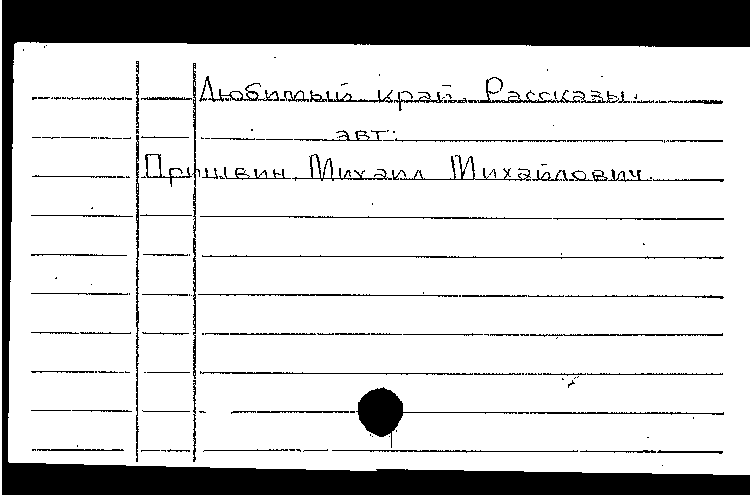 Любимый край. Рассказы.
авт:
Пришвин, Михаил Михайлович.